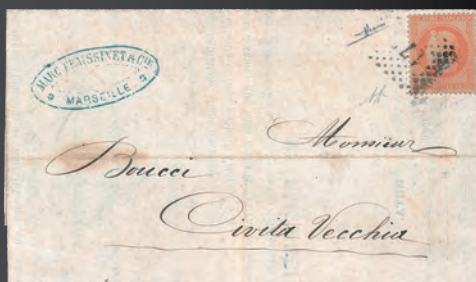 MARC FRAISSINET & CIE
MARSEILLE
Monsieur
Boucci
Civita Vecchia